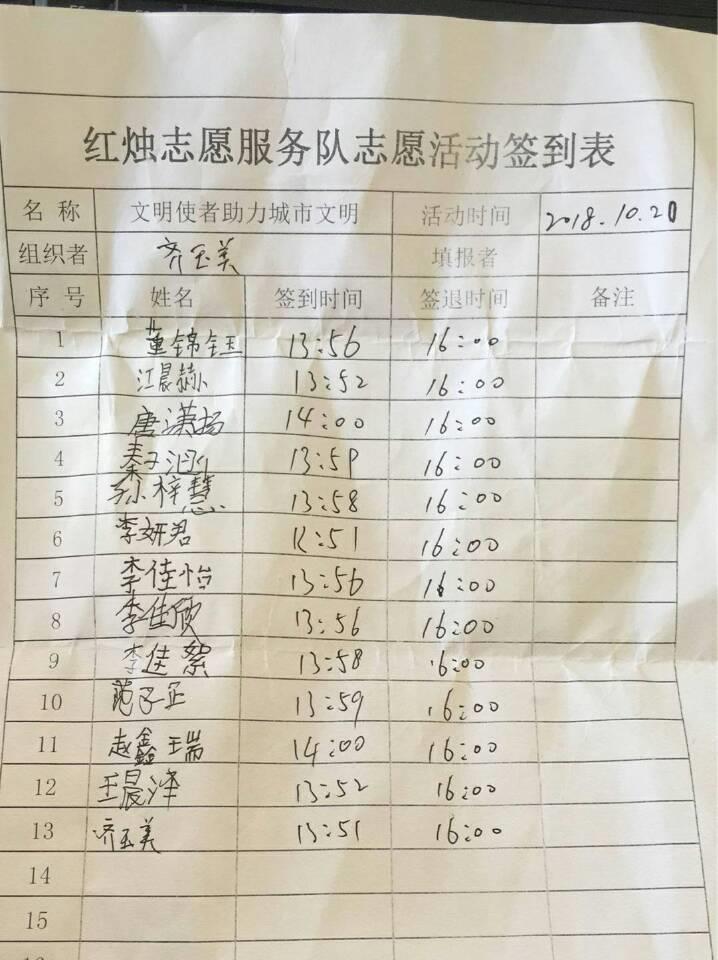 红烛志愿服务队志愿活动签到表
名 称 文明使者助力城市文明 活动时间 2018.10.20
组织者 齐玉美 填报者
序 号 姓名 签到时间 签退时间 备注
1 董锦钰 13:56 16:00
2 江晨赫 13:52 16:00
3 唐潇扬 14:00 16:00
4 秦子涵 13:59 16:00
5 孙梓慧 13:58 16:00
6 李妍君 :51 16:00
7 李佳怡 13:56 16:00
8 李佳欣 13:56 16:00
9 李佳絮 13:58 16:00
10 范子正 13:59 16:00
11 赵鑫瑞 14:00 16:00
12 王晨泽 13:52 16:00
13 齐玉美 13:51 16:00
14
15